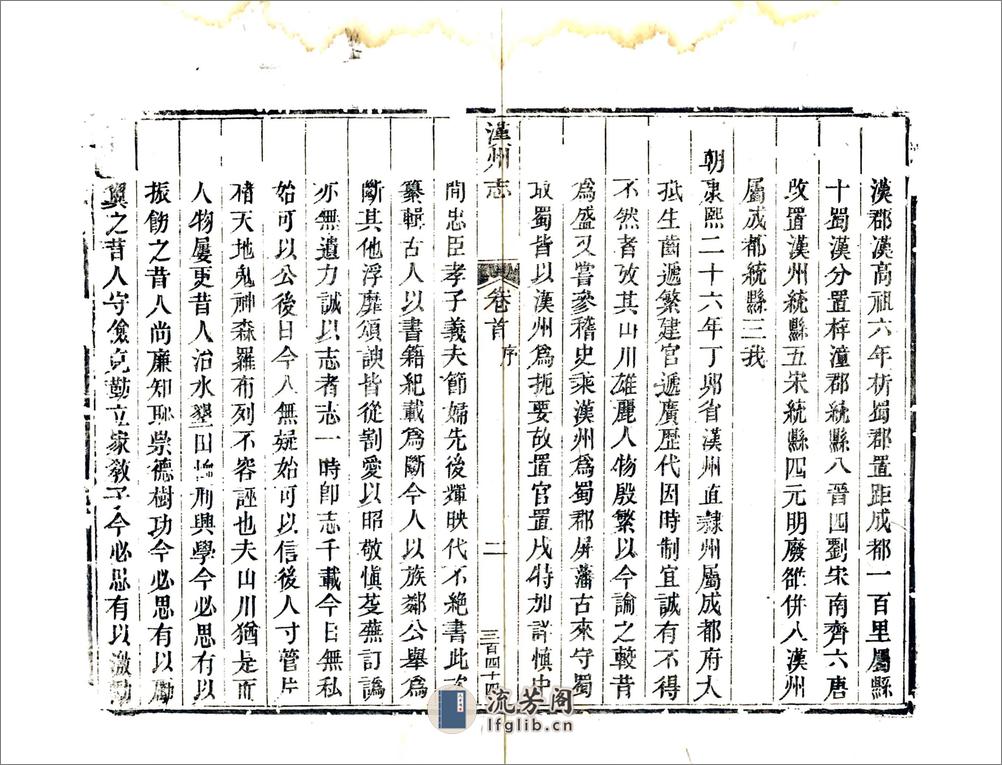 漢郡漢高祖六年析蜀郡置距成都一百里屬縣
十蜀漢分置梓潼郡統縣八晉四劉宋南齊六唐
改置漢州統縣五宋統縣四元明廢雒併入漢州
屬成都統縣三我
朝康熙二十六年丁卯省漢州直隸州屬成都府大
抵生齒遞繁建官遞廣歷代因時制宜誠有不得
不然者攷其山川雄麗人物殷繁以今論之較昔
為盛又嘗參稽史乘漢州為蜀郡屏藩古來守蜀
取蜀皆以漢州為扼要故置官置戍特加詳慎史
漢州志
卷首
序
二
三百四十四
間忠臣孝子義夫節婦先後輝映代不絶書此次
纂輯古人以書籍紀載為斷今人以族鄰公舉為
斷其他浮靡頌諛皆從割愛以昭敬慎芟蕪訂譌
亦無遺力誠以志者志一時即志千載今日無私
始可以公後日今人無疑始可以信後人寸管片
楮天地鬼神森羅布列不容誣也夫山川猶是而
人物屢更昔人治水墾田 刑興學今必思有以
振飭之昔人尚廉知恥崇德樹功今必思有以勵
翼之昔人守儉克勤立家教子今必思有以激勸
流芳阁
lfglib.cn